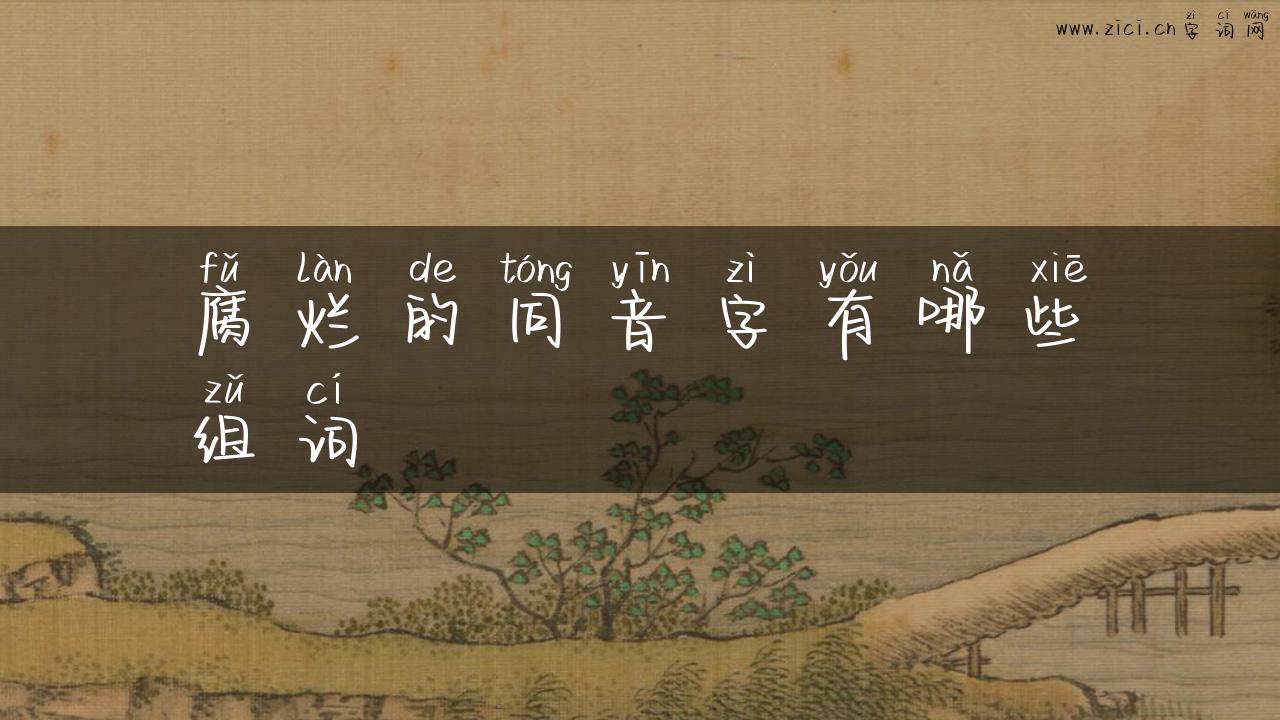 zì cí wǎng
www.zici.cn 字词网
fǔ làn de tóng yīn zì yǒu nǎ xiē
腐烂的同音字有哪些
zǔ cí
组词